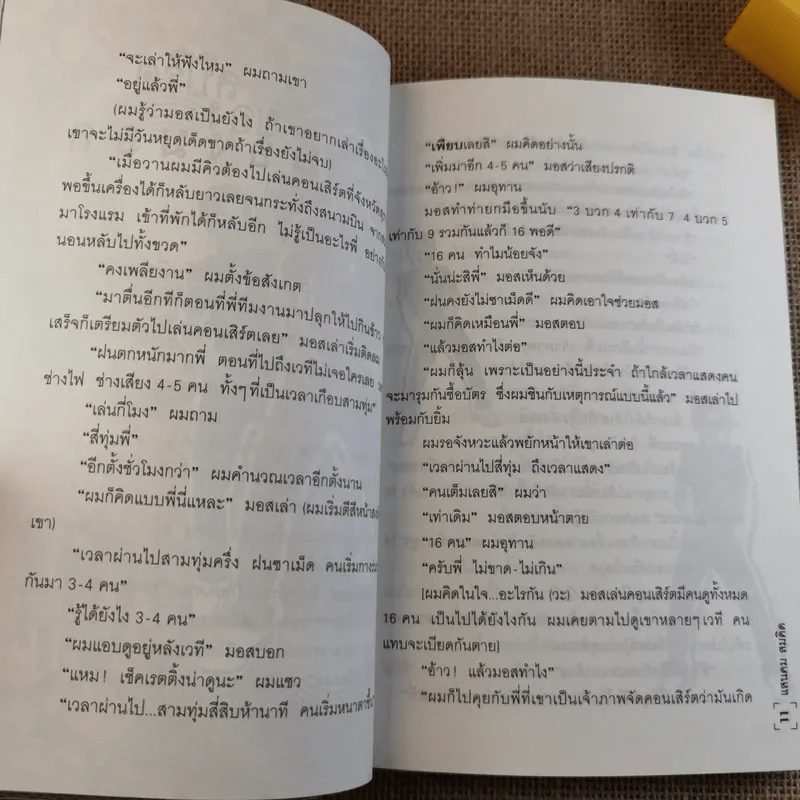 “จะเล่าให้ฟังไหม” ผมถามเขา
“อยู่แล้วพี่”
(ผมรู้ว่ามอสเป็นยังไง ถ้าเขาอยากเล่าเรื่องอะไร
เขาจะไม่มีวันหยุดเด็ดขาดถ้าเรื่องยังไม่จบ)
“เมื่อวานผมมีคิวต้องไปเล่นคอนเสิร์ตที่จังหวัด
พอขึ้นเครื่องได้ก็หลับยาวเลยจนกระทั่งถึงสนามบิน จาก
มาโรงแรม เข้าที่พักได้ก็หลับอีก ไม่รู้เป็นอะไรพี่
นอนหลับไปทั้งขวด”
“คงเพลียงาน” ผมตั้งข้อสังเกต
“มาตื่นอีกทีก็ตอนที่พี่ทีมงานมาปลุกให้ไปกินข้าว
เสร็จก็เตรียมตัวไปเล่นคอนเสิร์ตเลย” มอสเล่าเริ่มติดลม
“ฝนตกหนักมากพี่ ตอนที่ไปถึงเวทีไม่เจอใครเลย
ช่างไฟ ช่างเสียง 4-5 คน ทั้งๆ ที่เป็นเวลาเกือบสามทุ่ม”
“เล่นกี่โมง” ผมถาม
“สี่ทุ่มพี่”
“อีกตั้งชั่วโมงกว่า” ผมคำนวณเวลาอีกตั้งนาน
“ผมก็คิดแบบพี่นี่แหละ” มอสเล่า (ผมเริ่มตีสีหน้า
เขา)
“เวลาผ่านไปสามทุ่มครึ่ง ฝนซาเม็ด คนเริ่มกาง
กันมา 3-4 คน”
“รู้ได้ยังไง 3-4 คน”
“ผมแอบดูอยู่หลังเวที” มอสบอก
“แหม! เช็คเรตติ้งน่าดูนะ” ผมแซว
“เวลาผ่านไป...สามทุ่มสี่สิบห้านาที คนเริ่มหนาตาขึ้น
“เพียบเลยสิ” ผมคิดอย่างนั้น
“เพิ่มมาอีก 4-5 คน” มอสว่าเสียงปรกติ
“อ้าว!” ผมอุทาน
มอสทำท่ายกมือขึ้นนับ “3 บวก 4 เท่ากับ 7 4 บวก 5
เท่ากับ 9 รวมกันแล้วก็ 16 พอดี”
“16 คน ทำไมน้อยจัง”
“นั่นน่ะสิพี่” มอสเห็นด้วย
“ฝนคงยังไม่ซาเม็ดดี” ผมคิดเอาใจช่วยมอส
“ผมก็คิดเหมือนพี่” มอสตอบ
“แล้วมอสทำไงต่อ”
“ผมก็ลุ้น เพราะเป็นอย่างนี้ประจำ ถ้าใกล้เวลาแสดงคน
จะมารุมกันซื้อบัตร ซึ่งผมชินกับเหตุการณ์แบบนี้แล้ว” มอสเล่าไป
พร้อมกับยิ้ม
ผมรอจังหวะแล้วพยักหน้าให้เขาเล่าต่อ
“เวลาผ่านไปสี่ทุ่ม ถึงเวลาแสดง”
“คนเต็มเลยสิ” ผมว่า
“เท่าเดิม” มอสตอบหน้าตาย
“16 คน” ผมอุทาน
“ครับพี่ ไม่ขาด-ไม่เกิน”
[ผมคิดในใจ...อะไรกัน (วะ) มอสเล่นคอนเสิร์ตมีคนดูทั้งหมด
16 คน เป็นไปได้ยังไงกัน ผมเคยตามไปดูเขาหลายๆ เวที คน
แทบจะเบียดกันตาย]
“อ้าว! แล้วมอสทำไง”
“ผมก็ไปคุยกับพี่ที่เขาเป็นเจ้าภาพจัดคอนเสิร์ตว่ามันเกิด
11 แสนคม สมคิด